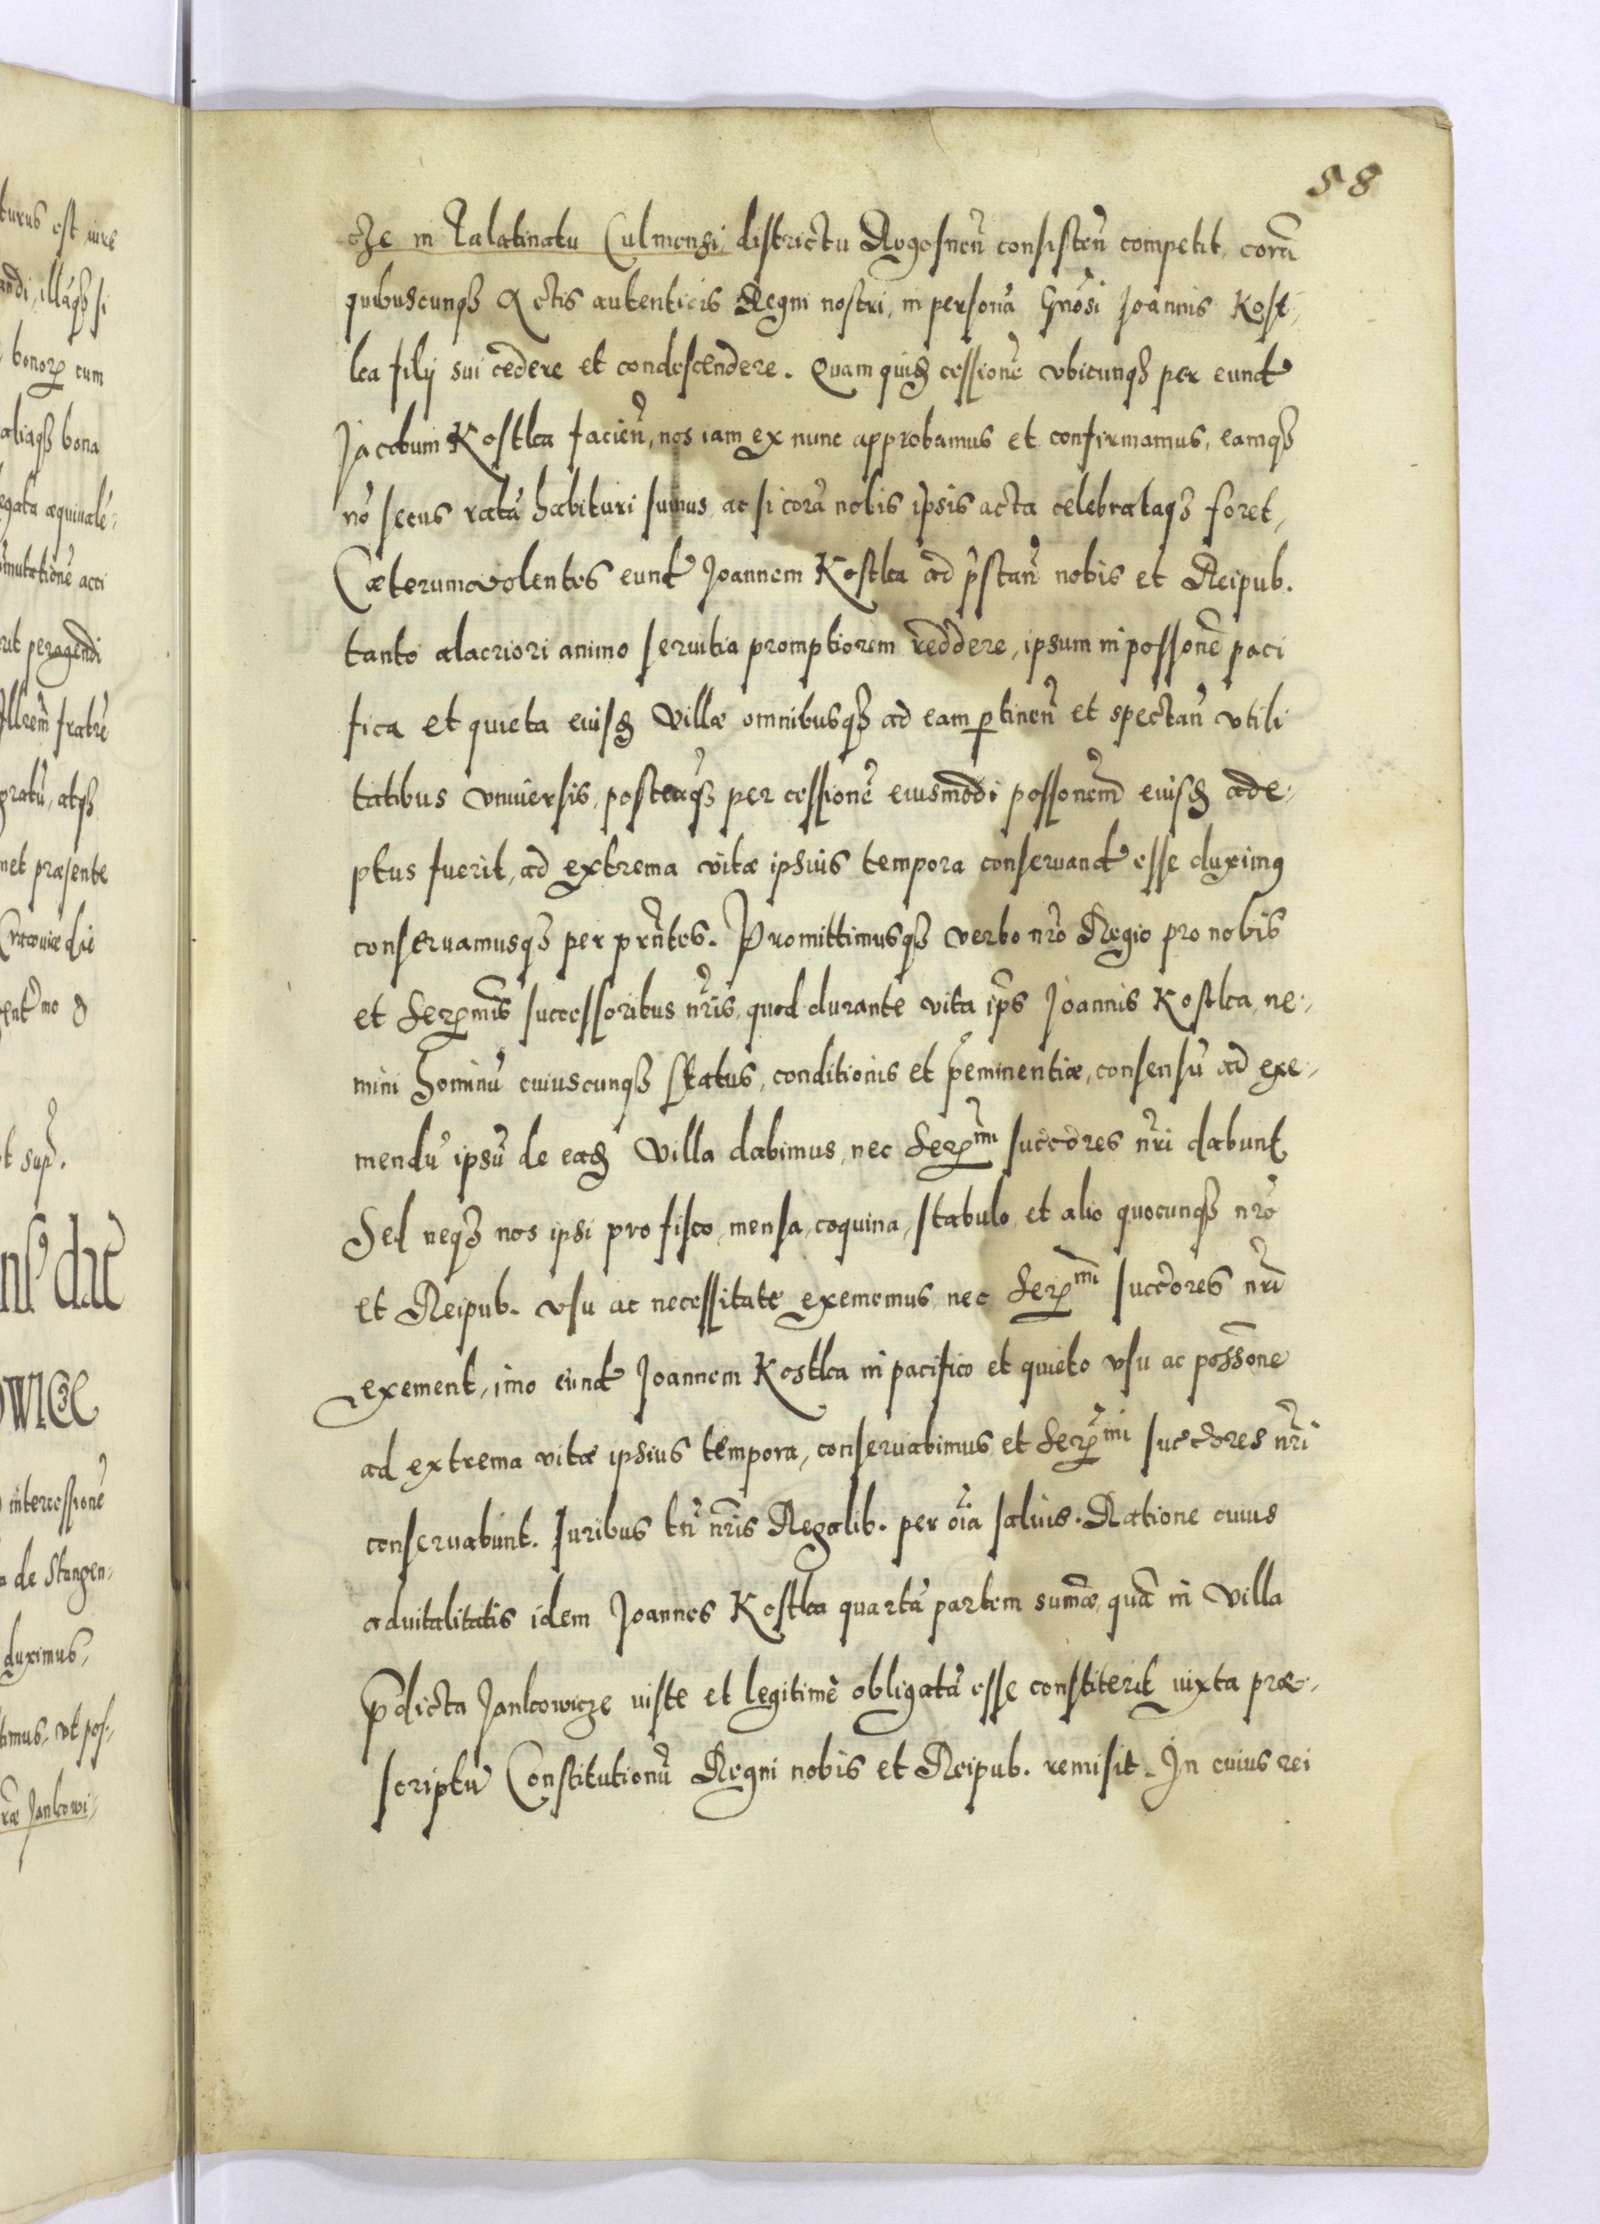 58
cze in Palatinatu Culmensi districtu Rogosneñ consisteñ competit, corã
quibuscunqȝ Actis autenticis Regni nostri, in personã Gnõsi Joannis Kost-
ka filij sui cedere et condescendere. Quam quidẽ cessionẽ vbicunqȝ per eund
Jacobum Kostka facieñ, nos iam ex nunc approbamus et confirmamus, eamqȝ
nõ secus ratã habituri sumus ac si corã nobis ipsis acta celebrataqȝ foret,
Cæterum volentes eund Joannem Kostka ad p̃stañ nobis et Reipub.
tanto alacriori animo seruitia promptiorem reddere, ipsum in possonẽ paci
fica et quieta eiusdẽ Villæ omnibusqȝ ad eam ꝑtineñ et spectañ vtili
tatibus vniuersis, posteaqȝ per cessionẽ eiusmodi possonem eiusdẽ ade-
ptus fuerit, ad extrema vitæ ipsius tempora conseruand esse duximꝰ
conseruamusqȝ per prñtes. Promittimusqȝ verbo nrõ Regio pro nobis
et Serẽmis successoribus nr̃is, quod durante vita ip̃s Joannis Kostka, ne-
mini hominũ cuiuscunqȝ Status, conditionis et p̃eminentiæ, consensũ ad exi-
mendũ ipsũ de eadẽ Villa dabimus, nec Serẽmi succ̃ores nr̃i dabunt
Sed neqȝ nos ipsi pro fisco, mensa, coquina, stabulo, et alio quocunqȝ nr̃o
et Reipub. vsu ac necessitate exememus, nec Serẽmi succ̃ores nr̃i
exement, imo eund Joannem Kostka in pacifico et quieto vsu ac possõne
ad extrema vitæ ipsius tempora, conseruabimus, et Serẽmi succ̃ores nr̃i
conseruabunt. Iuribus tñ nr̃is Regalib. per oĩa saluis. Ratione cuius
aduitalitatis idem Joannes Kostka quartã partem sum̃æ, quã in Villa
p̃dicta Jankowicze iuste et legitimè obligatã esse constiterit iuxta præ-
scriptũ Constitutionũ Regni nobis et Reipub. remisit. In cuius rei